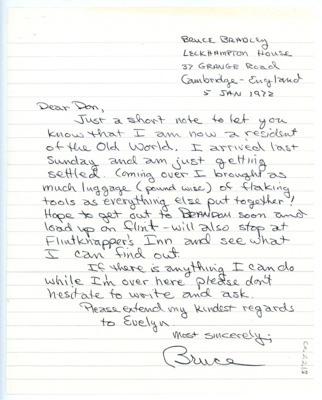 Bruce Bradley
Leckhampton House
37 Grange Road
Cambridge - England
5 JAN 1972
Dear Don,
Just a short note to let you
know that I am now a resident
of the Old World. I arrived last
Sunday and am just getting
settled. Coming over I brought as
much luggage (pound wise) of flaking
tools as everything else put together!
Hope to get out to BRANDON soon and
load up on flint - will also stop at
Flintknapper's Inn and see what
I can find out.
If there is anything I can do
while I'm over here please don't
hesitate to write and ask.
Please extend my kindest regards
to Evelyn.
Most sincerely;
Bruce